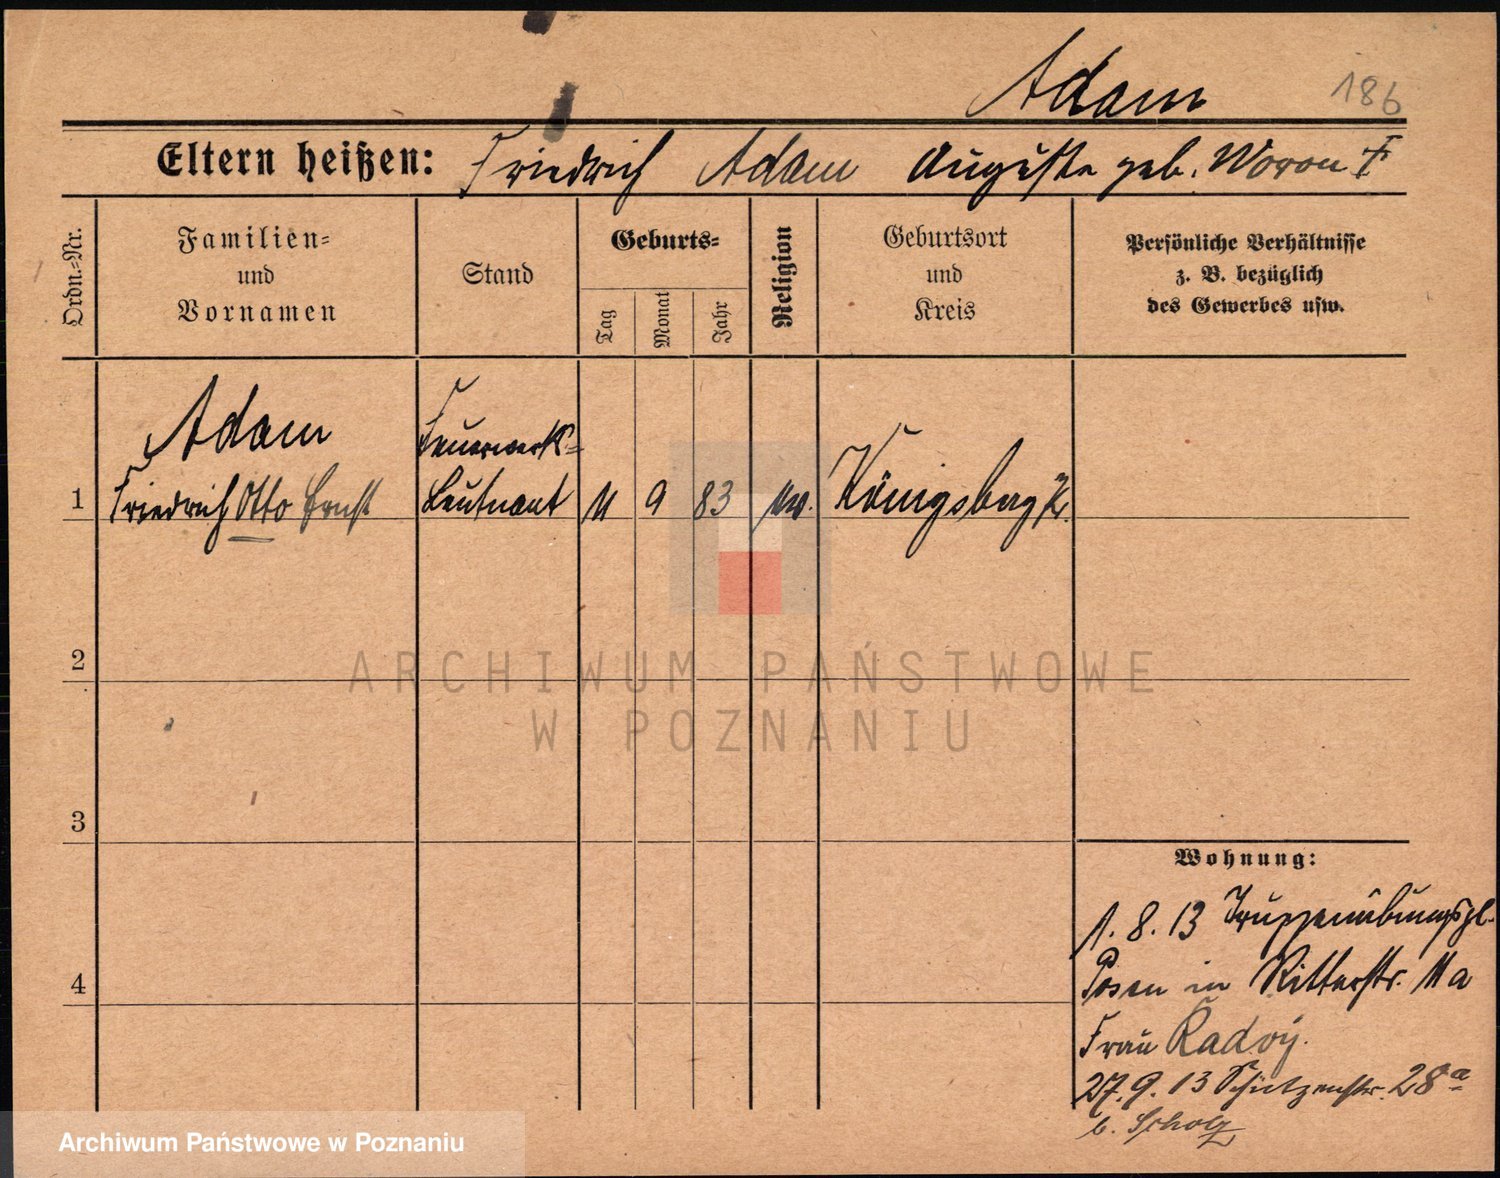 Adam 186
Eltern heißen: Friedrich Adam Auguste geb. Woron †
Ordn.-Nr.
Familien-
und
Vornamen
Stand
Geburts-
Tag
Monat
Jahr
Religion
Geburtsort
und
Kreis
Persönliche Verhältnisse
z. B. bezüglich
des Gewerbes usw.
Adam
Feuerwerks-
1 Friedrich Otto Ernst Leutnant 11 9 83 Königsberg Pr.
2
3
4
ARCHIWUM PAŃSTWOWE
W POZNANIU
Wohnung:
1. 8. 13 Truppenübungspl.
Posen in Ritterstr. 11a
Frau
27. 9. 13 Schützenstr. 28a
b. Scholz
Archiwum Państwowe w Poznaniu